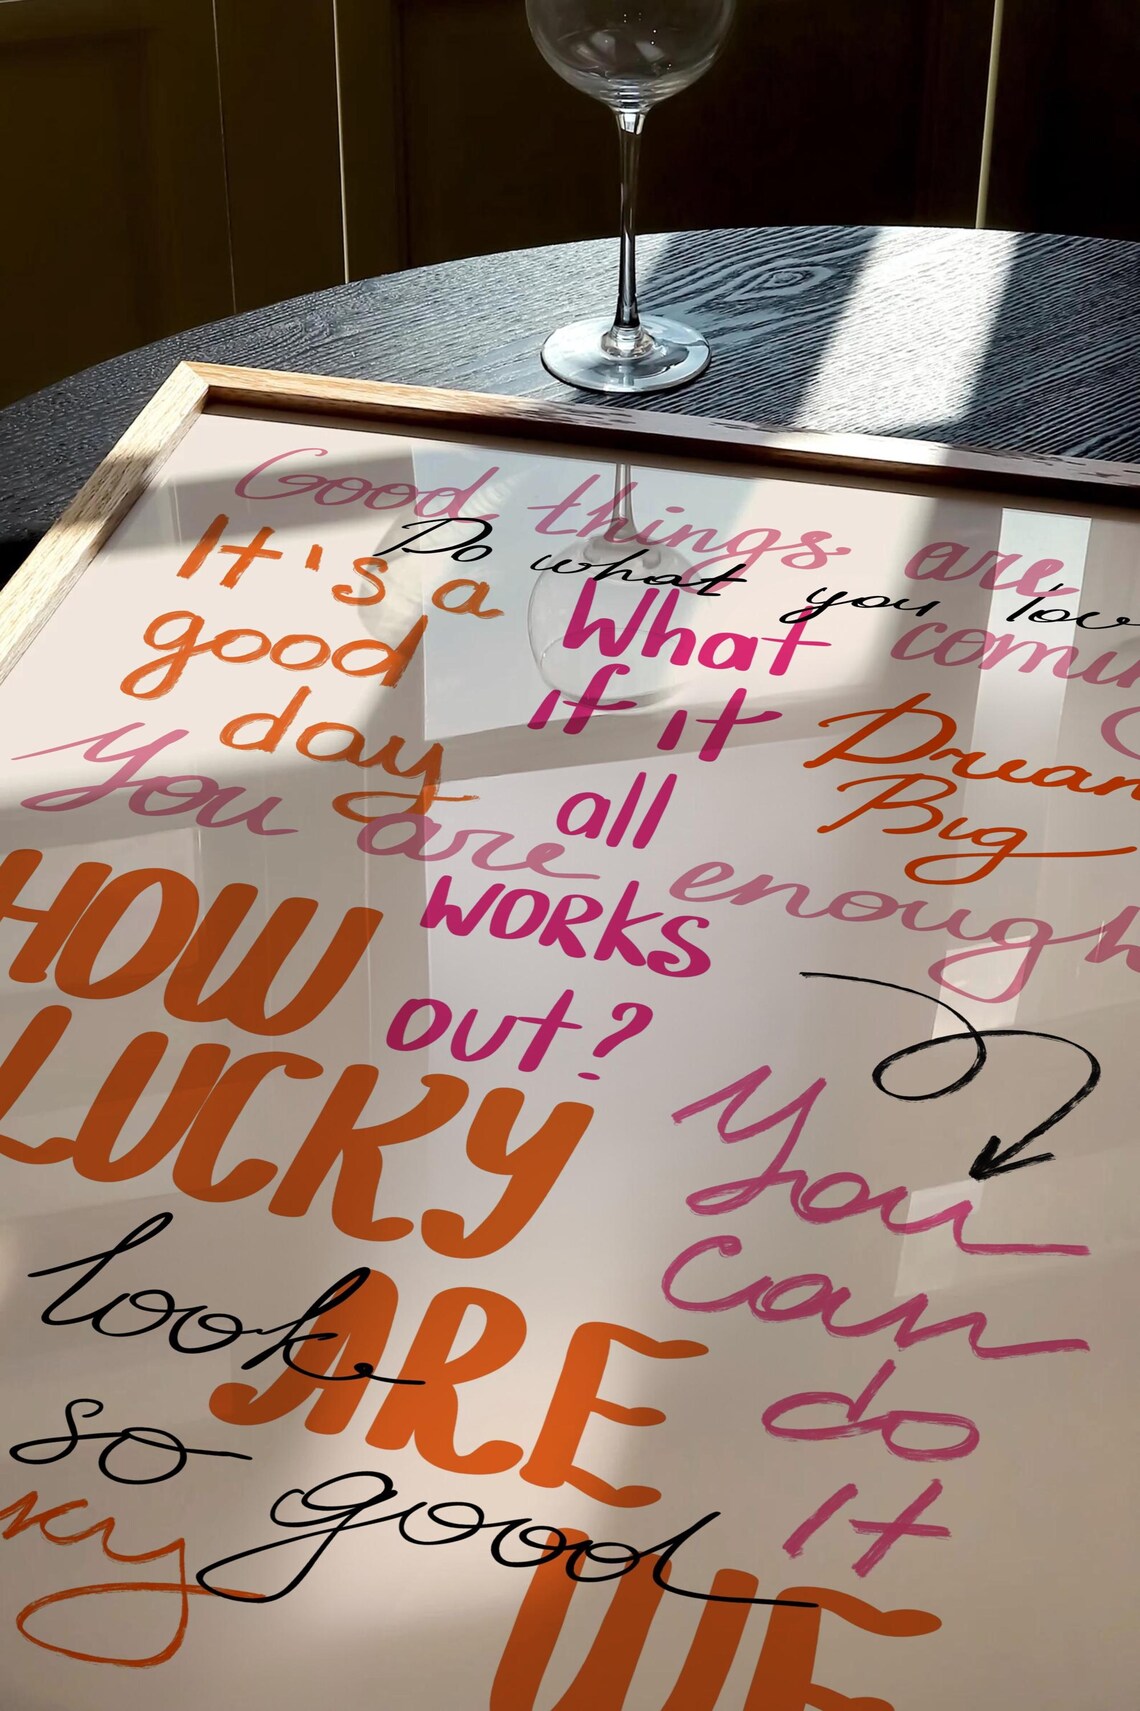 Good things are
Do what you lov
comin
It's a
good
day
What
if it
all
works
out?
Dream
Big
You are enough
HOW
LUCKY
ARE
WE
You
can
do
it
look
so good
ky